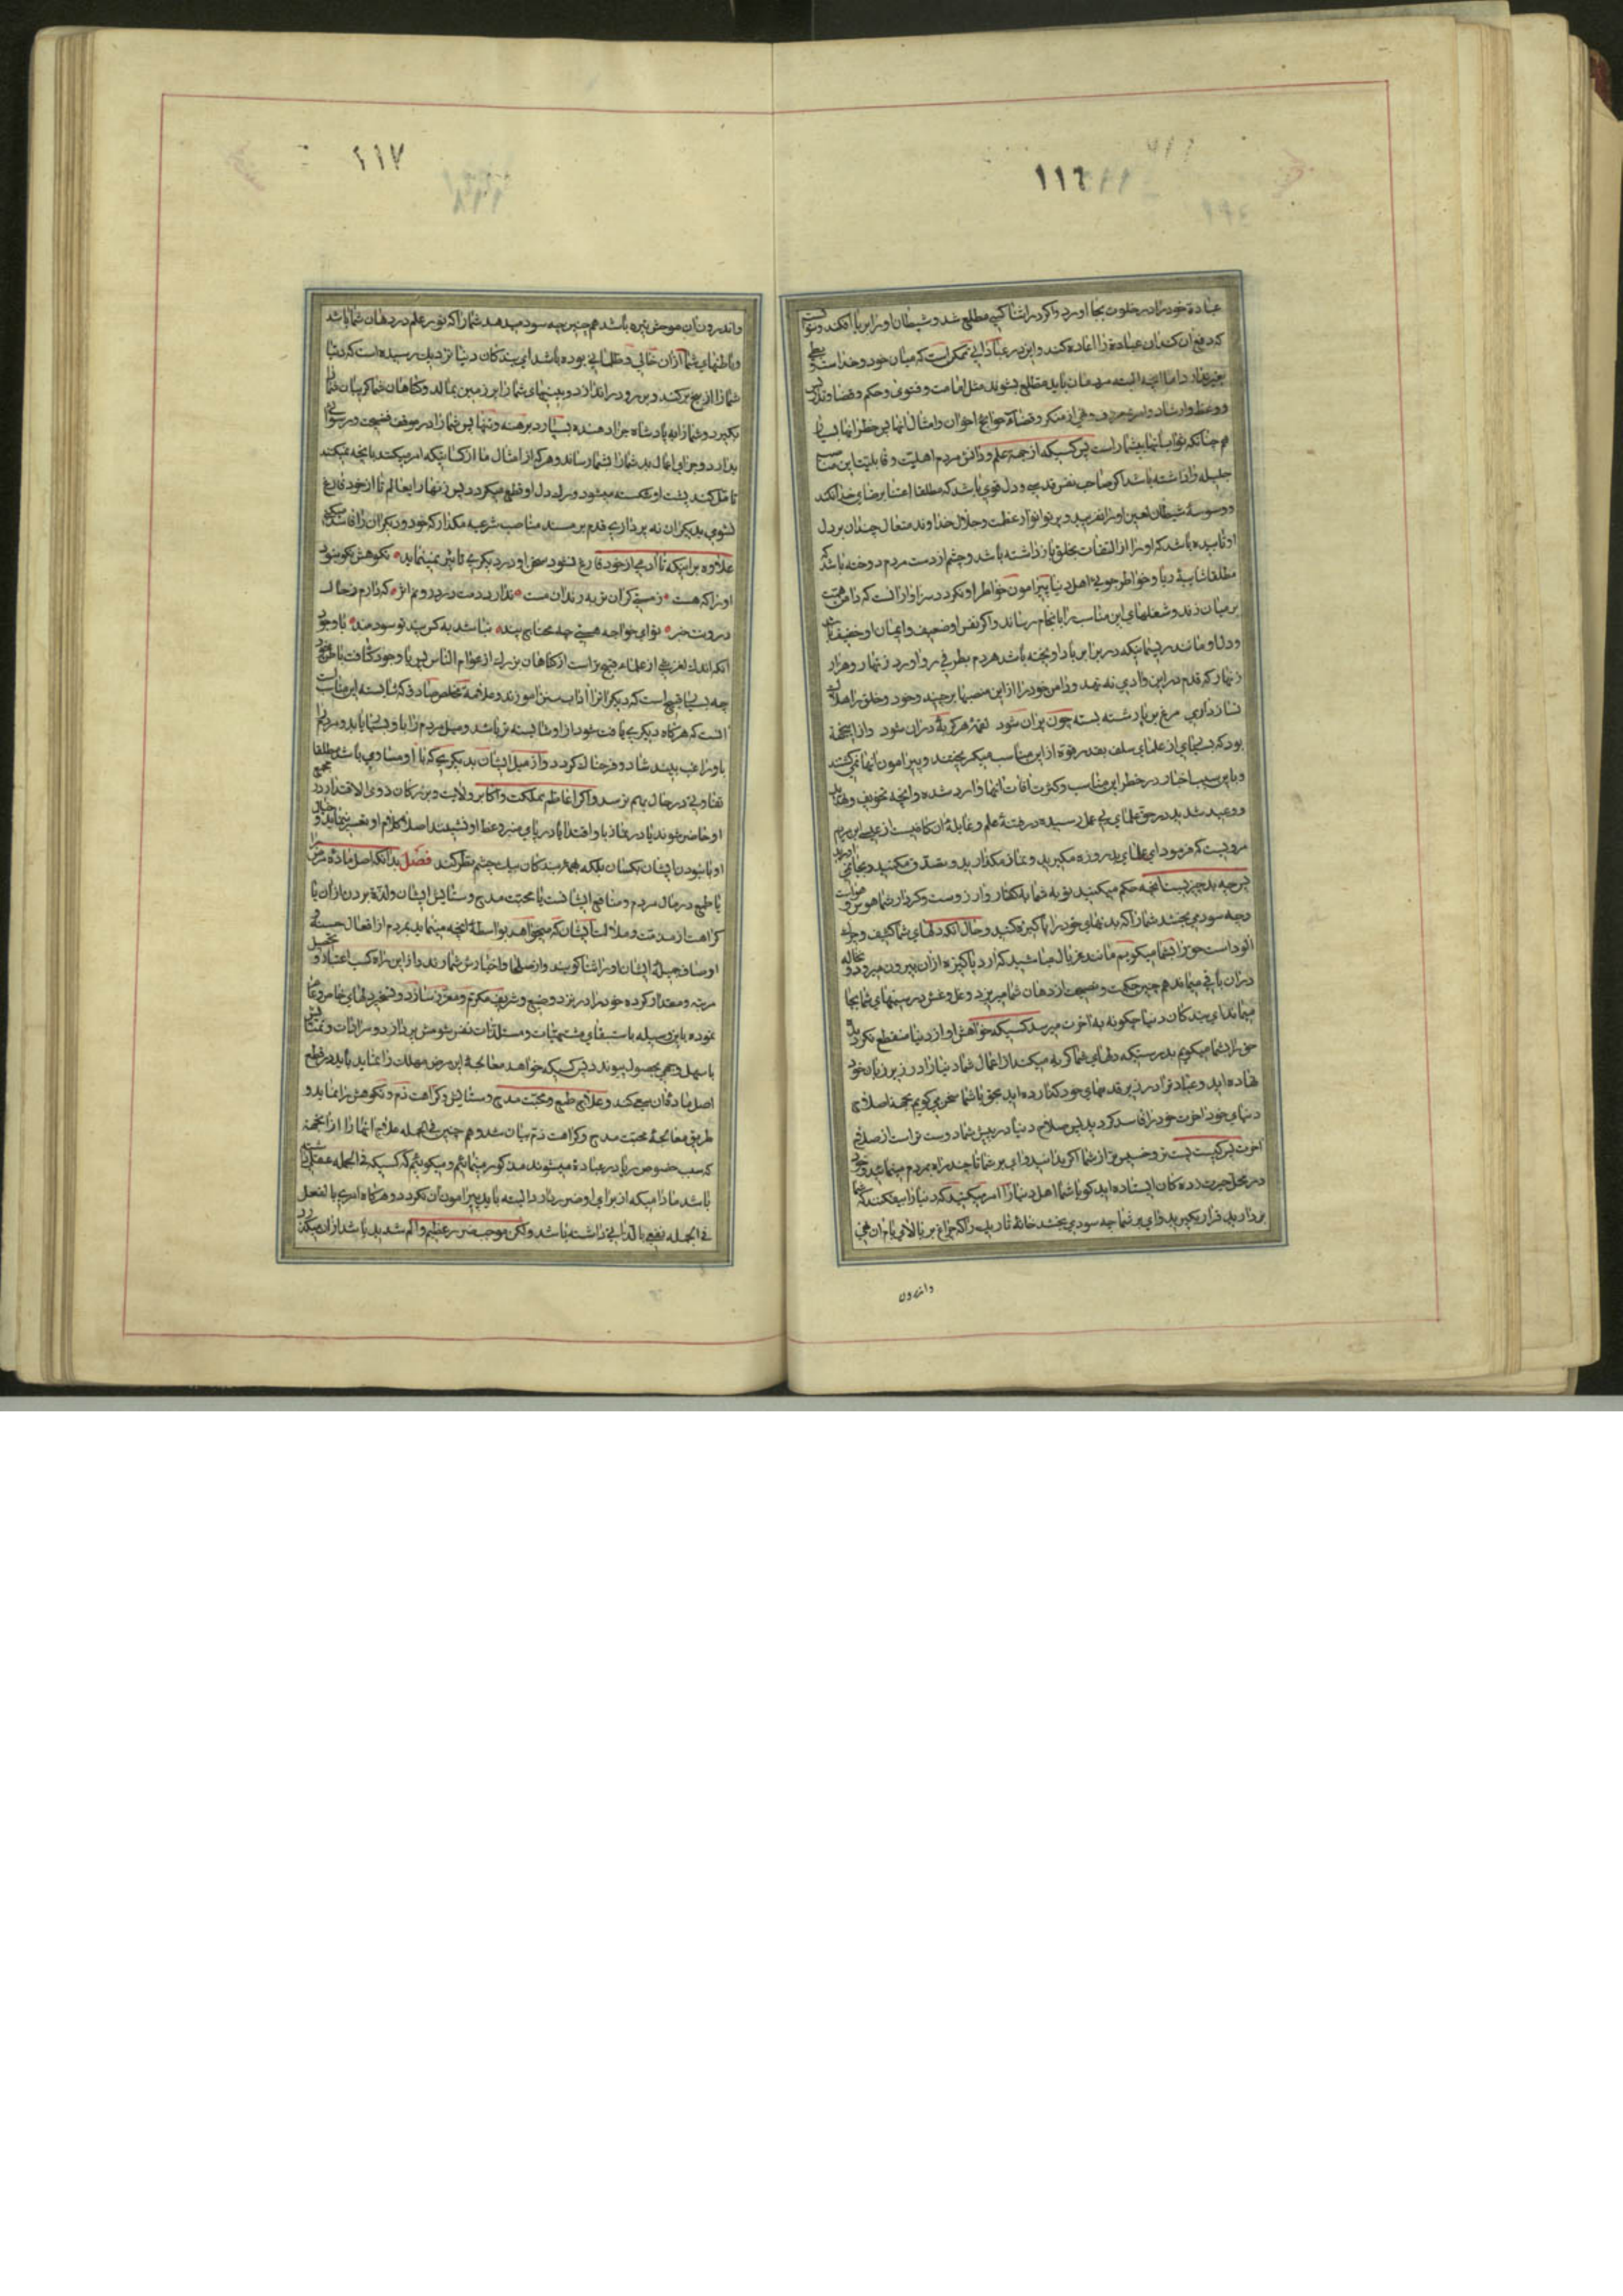 ١١٦
عبادة خود را در خلوت بجا اورد و اکر در اثنا کسی مطلع شد و شیطان او را بر یا افکند و نتوانست
که دفع ان کند ان عبادة را اعاده کند و این در عباداتی ممکن است که میان خود و خدا است
بغیر عباد و اما انچه البته مردمان باید مطلع بشوند مثل امامت و فتوی و حکم و قضا و تدریس
و وعظ و ارشاد و امر بمعروف و نهی از منکر و قضاء حوایج اخوان و امثال انها پس خطر انها بسیار
هم چنانکه ثواب انها بیشمار است پس کسیکه از جهة علم و دانش مردم اهلیت و قابلیت این مناصب
جلیله را داشته باشد اکر صاحب نفس قدسی و دل قوی باشد که مطلقا اعتنا بر ضای خدا نکند
و وسوسۀ شیطان لعین او را نفریبد و پرتو انوار عظمت و جلال خداوند متعال چندان بر دل
او تابیده باشد که او را از التفات بخلق باز داشته باشد و چشم از دست مردم دوخته باشد که
مطلقا شایبۀ ریا و خواطر جویی اهل دنیا پیرامون خواطر او نکردد سزاوار انست که دامن همت
بر میان زند و شغلهای این مناسب را بانجام رساند و اکر نفس او ضعیف و ایمان او خفیف باشد
و دل او مانند ریسمانیکه در برابر باد اویخته باشد هر دم بطرفی رو اورد زنهار و هزار
زنهار که قدم در این وادی ننهد و دامن خود را از این منصبها برچیند و خود و خلق را هلاک
نسازد اری مرغ بر یا رشته بسته چون پران شود لقمۀ هر کربۀ دران شود و از این جهة
بود که بسیاری از علمای سلف بقدر قوة از این مناسب میکریختند و پیرامون انها نمی کشتند
و باین سبب اخبار در خطر این مناسب و کثرت افات انها وارد شده و انچه تخویف و تهدید
و وعید شدید در حق علمای بی عمل رسیده در فتنۀ علم و غایلۀ ان کافیست از عیسی ابن مریم
مرویست که فرمود ای علمای بد روزه میکیرید و نماز میکذارید و تصدق میکنید و بجا نمی اورید
پس چه بد چیزیست انچه حکم میکنید توبه شما بکفتار و ارزوست و کردار شما هوس و هواست
و چه سود می بخشد شما را که بدنهای خود را پاکیزه کنید و حال انکه دلهای شما کثیف و چرک
الود است حق را بشما میکویم مانند غربال مباشید که ارد پاکیزه از ان بیرون میرود و نخاله
در ان باقی میماند هم چنین حکمت و نصیحت از دهان شما میریزد و غل و غش در سینهای شما بجا
میماند ای بندکان دنیا چکونه به اخرت میرسد کسیکه خواهش او از دنیا منقطع نکردد
حق را بشما میکویم بدرستیکه دلهای شما کریه میکند از اعمال شما دنیا را در زیر زبان خود
نهاده اید و عبادت را در زیر قدمهای خود کذارده اید بحق با شما سخن می کویم بجهة اصلاح
دنیای خود اخرت خود را فاسد کردید پس صلاح دنیا در پیش شما دوست تر است از صلاح
اخرت پس کیست پست تر و خسیس تر از شما اکر بدانید وای بر شما تا چند راه بمردم مینمائید و خود
در محل حیرت زده کان ایستاده اید کویا شما اهل دنیا را امر میکنید که دنیا را بیفکنند که شما
بردارید قرار بکیرید وای بر شما چه سود می بخشد خانۀ تاریک را که چراغ بر بالای بام ان نهی
واندرون
١١٧
و اندرون ان موحش تیره باشد هم چنین چه سود میدهد شما را که نور علم در دهان شما باشد
و باطنهای شما از ان خالی و ظلمانی بوده باشد ای بندکان دنیا نزدیک رسیده است که دنیا
شما را از بیخ برکند و بر رو در اندازد و بینیهای شما را بر زمین بمالد و کناهان شما کریبان شما را
بکیرد و شما را به پادشاه جزا دهنده بسپارد برهنه و تنها پس شما را در موقف فضیحت و رسوائی
بدارد و جزای اعمال بد شما را بشما رساند و هرکه از امثال ما از کسانیکه امر میکنند بانچه نمیکنند
تامل کنند پشت او شکسته میشود و برک دل او قطع میکردد پس زنهار ای عالم تا از خود فارغ
نشوی بدیکران نه پردازی قدم بر مسند مناصب شرعیه مکذار که خود و دیکران را فاسد میکنی
علاوه بر اینکه تا ادمی از خود فارغ نشود سخن او در دیکری تاثیر نمینماید نکوهش نکو نبود
او را که هست ز مستی کران تر به رندان مست ندارد دمت در درونم اثر که دارم ز حال
درونت خبر تو ای خواجه هستی چه محتاج پند نباشد به کس پند تو سود مند با وجود
انکه اندک لغزشی از علما قبیح تر است از کناهان بزرک از عوام الناس پس با وجود کثافت باطن خود
چه بسیار قبیح است که دیکران را اداب سنن اموزند و علامۀ مخلص صادق که شایسته این مناسب است
انست که هرکاه دیکری یافت شود از او شایسته تر باشد و میل مردم را با و بسیار یابد و مردم را
باو راغب بیند شاد و فرحناک کردد و از میل ایشان بدیکری که با او مساوی باشد مطلقا
تفاوتی در حال بهم نرسد و اکر اعاظم مملکت و اکابر ولایت و بزرکان ذوی الاقتدار در مجمع
او حاضر شوند یا در نماز باو اقتدا یا در پای منبر وعظ او نشینند اصلا کلام او تغییر ننماید و حال
او با نبودن ایشان یکسان بلکه بهمۀ بندکان بیک چشم نظر کند فصل بدانکه اصل مادۀ مرض ریا
یا طمع در مال مردم و منافع ایشانست یا محبت مدح و ستایش ایشان و لذة بردن از ان یا
کراهت از مذمت و ملالت ایشان که میخواهد بواسطۀ انچه مینماید بمردم از افعال حسنه و
اوصاف جمیله ایشان او را ثنا کویند و از صلحا و اخیارش شمارند و از این راه کسب اعتبار و تحصیل
مرتبه و مقدار کرده خود را در نزد وضیع و شریف مکرم و معزز سازد و تسخیر دلهای خاص و عام
نموده باین وسیله باستیفای مشتهیات و مستلذات نفس شومش پردازد و مرادات و تمنایش
باسهل وجهی بحصول پیوندد پس کسیکه خواهد معالجۀ این مرض مهلک را نماید باید در قطع
اصل ماده ان سعی کند و علاج طمع و محبت مدح و ستایش و کراهت ذم و نکوهش را نماید و
طریق معالجۀ محبت مدح و کراهت ذم بیان شد و هم چنین فی الجمله علاج انها را از انجهة
که سبب خصوص ریا در عبادة میشوند مذکور مینمائیم و میکوئیم که کسیکه فی الجمله عقل داشته
باشد مادامیکه از برای او ضرر ندارد البته باید پیرامون ان نکردد و هرکاه امری بالفعل
فی الجمله نفعی یا لذتی داشته باشد ولکن موجب ضرر عظیم و الم شدید باشد از ان میکذرد